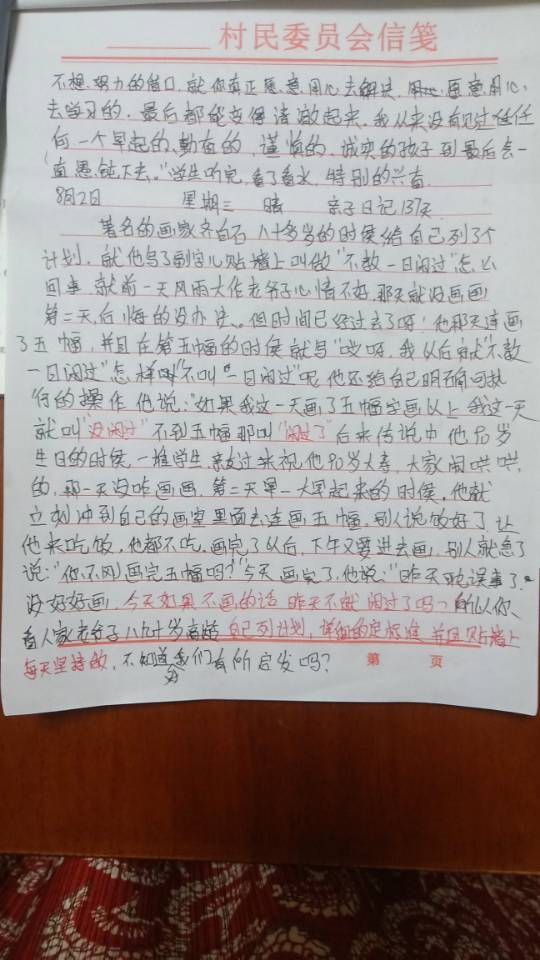 村民委员会信笺
不想努力的借口,就你真正愿意用心去解决,愿意用心
去学习的,最后都能变得清澈起来,我从来没有见过任何
何一个早起的、勤奋的、谨慎的、诚实的孩子到最后会一
直愚钝下去。"学生听完,看了看水,特别的兴奋
8月2日 星期三 晴 亲子日记137天
著名的画家齐白石八十多岁的时候给自己列了个
计划,就他写了副字儿贴墙上叫做"不教一日闲过"怎么
回事,就前一天风雨大作老爷子心情不好,那天就没画画
第二天后悔的没办法。但时间已经过去了呀!他那天连画
了五幅,并且在第五幅的时候就写"哎呀,我以后就"不教
一日闲过"怎样叫"不叫"一日闲过"呢,他还给自己明确可执
行的操作他说:"如果我这一天画了五幅字画以上,我这一天
就叫"没闲过"不到五幅那叫"闲过了"后来传说中他90岁
生日的时候,一堆学生、亲友过来祝他90岁大寿,大家闹哄哄
的,那一天没咋画画,第二天早一大早起来的时候,他就
立刻冲到自己的画室里面去连画五幅,别人说饭好了让
他来吃饭,他都不吃,画完了以后,下午又要进去画,别人就急了
说:"你不刚画完五幅吗?"今天画完了,他说:"昨天耽误事了。
没好好画,今天如果不画的话昨天不就闲过了吗?"所以你
看人家老爷子八九十岁高龄自己列计划,详细的定标准并且贴墙上
每天坚持做,不知道会对我们有所启发吗?
第 页